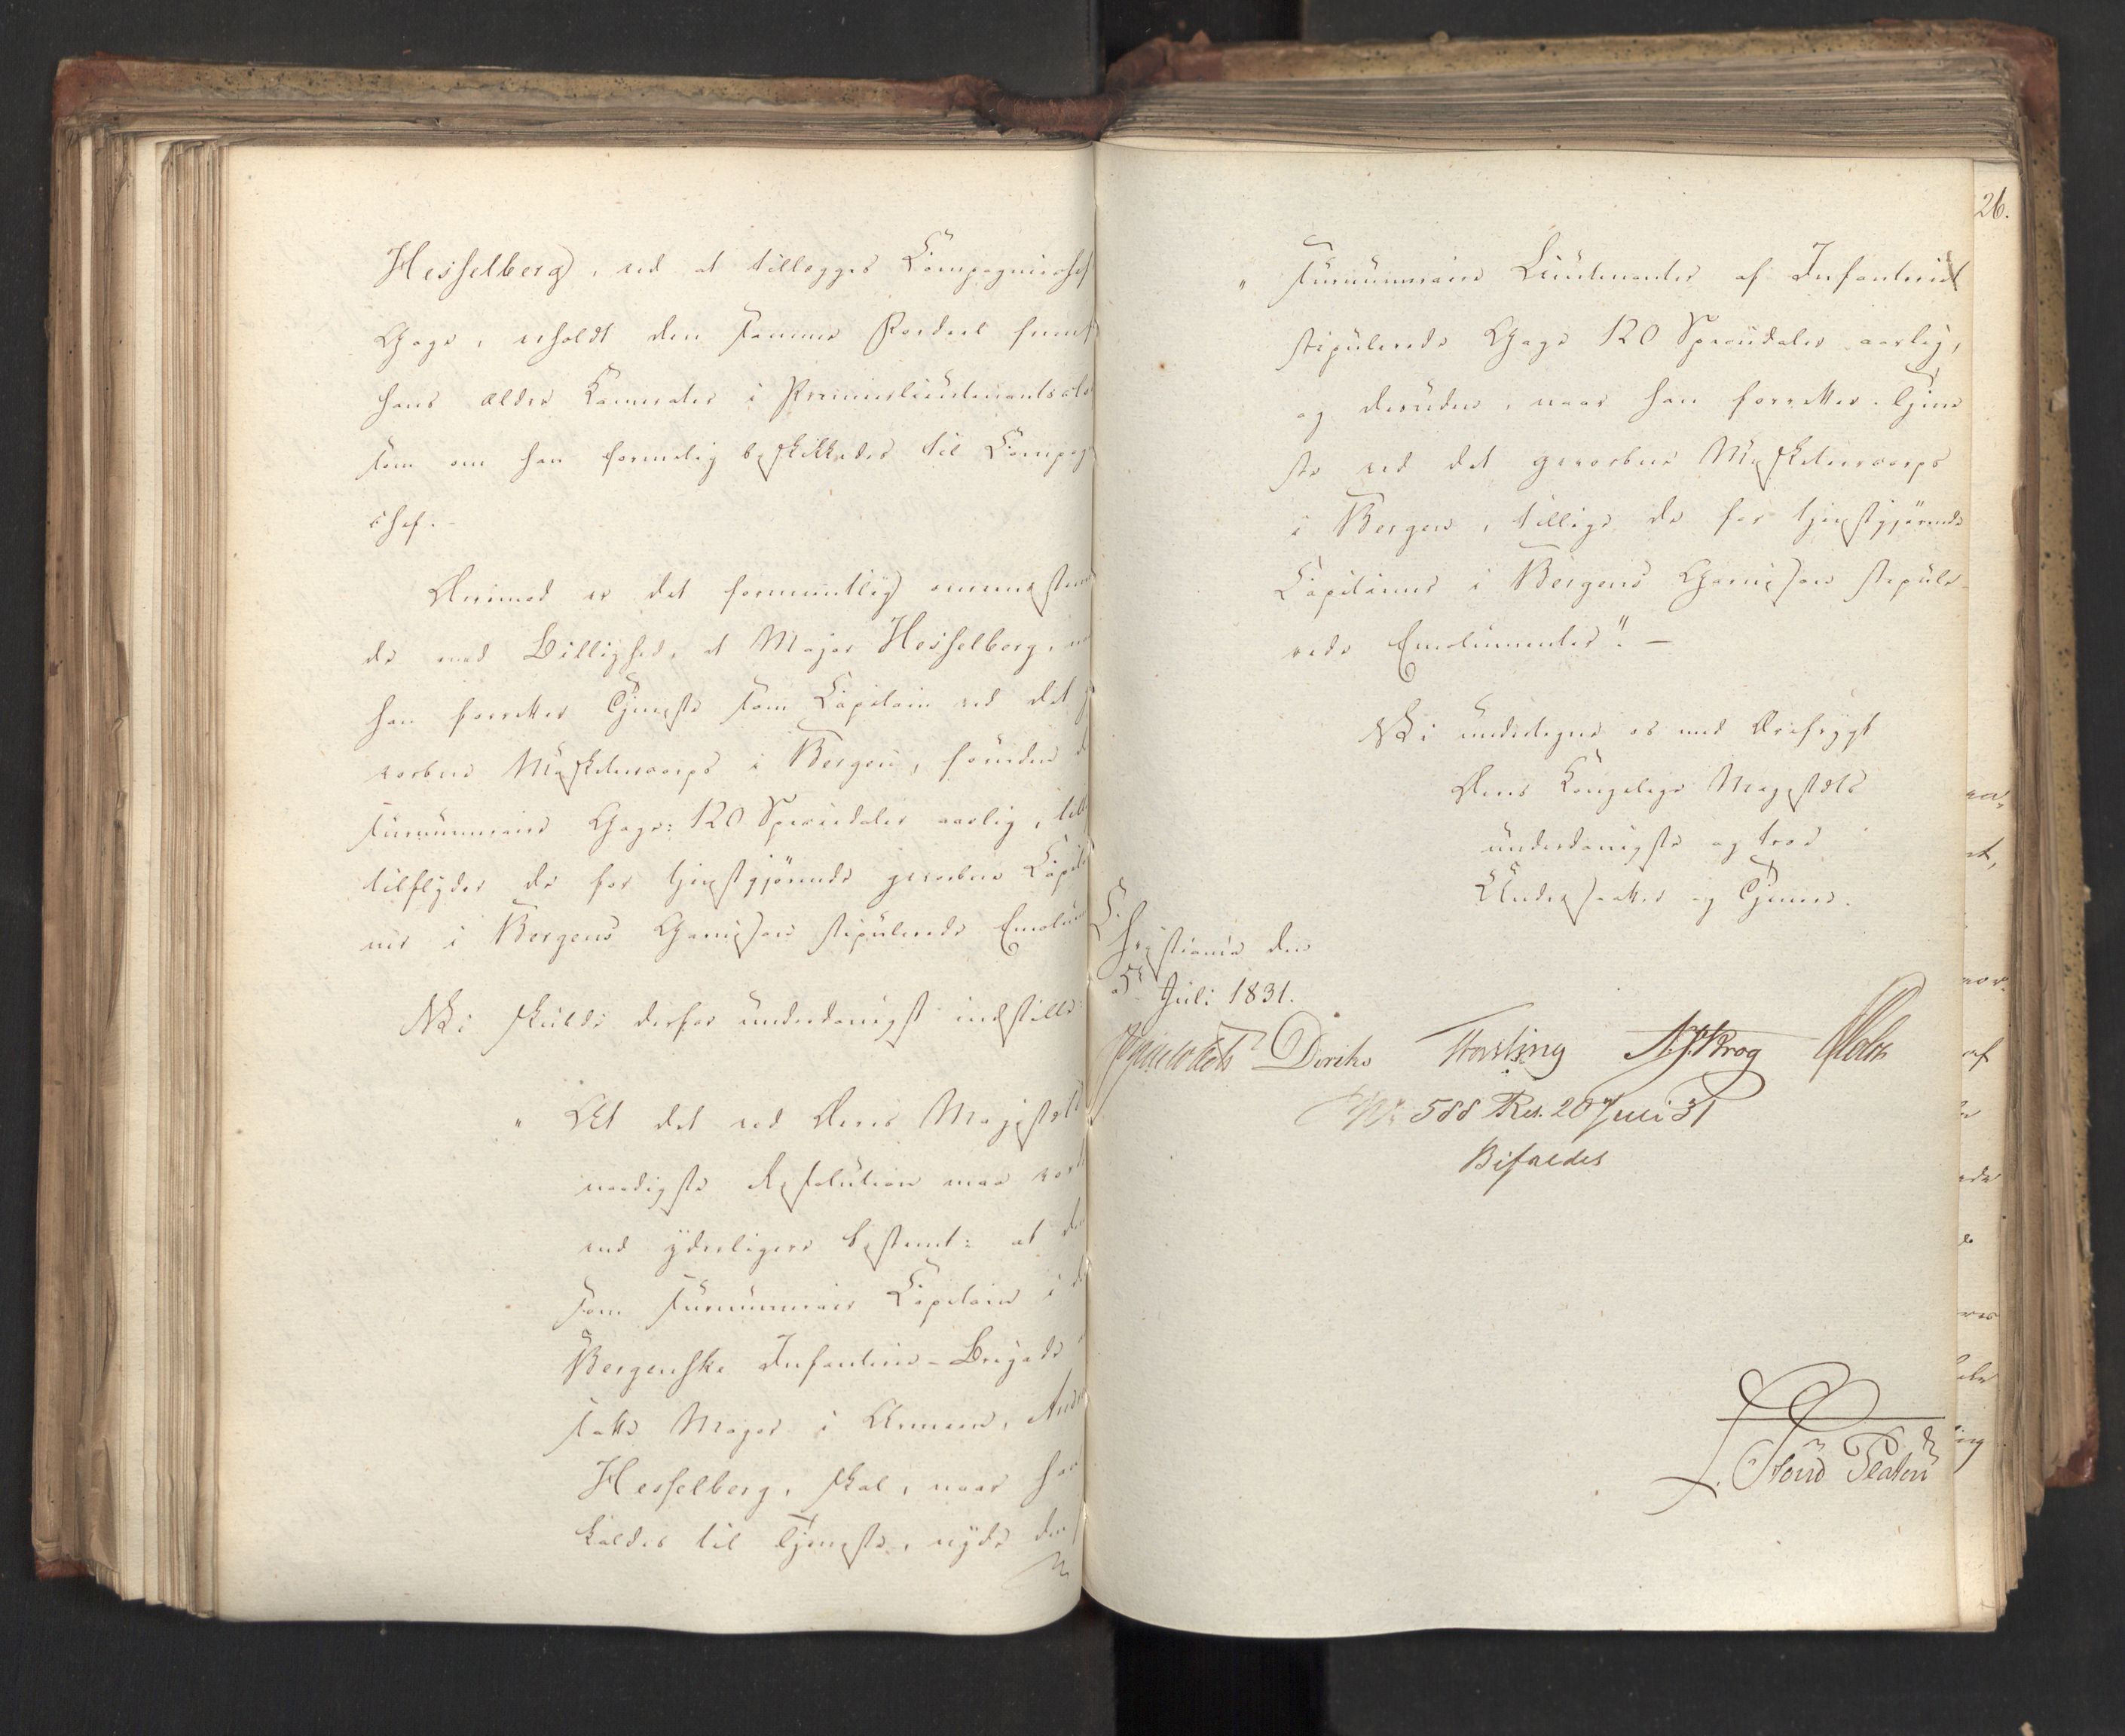 Hesselberg, ved at tillægges Compagniechefs
Gage, erholdt den samme Fordeel fremf
hans ældre Kamerater i Premierlieutenants
som om han formelig beskikkedes til Compag
chef.-
Derimod er det formeentlig overeensstem
de med Billighed, at Major Hesselberg,
han forretter Tjeneste som Capitain ved det g
vorbne Musketeercorps i Bergen, foruden d
surnumeraire Gage: 120 Speciedaler aarlig, till
tilflyder de for tjenstgjørende gevorbne Capit
ner i Bergens Garnison stipulerede Emolu
Vi skulde derfor underdanigst indstille:
" At det ved Deres Majestæts
naadigste Resolution maa vorde
end yderligere bestemt: at den
som surnumerair Capitain i d
Bergenske Infanterie-Brigade
satte Major i Armeen,
Hesselberg, skal, naar han
kaldes til Tjeneste, nyde den
26.
" surnumeraire Lieutenanter af Infanteriet
stipulerede Gage 120 Speciedaler aarlig,
og desuden, naar han forretter Tjene
ste ved det gevorbne Musketeercorps
i Bergen, tillige de for tjenstgjørende
Capitainer i Bergens Garnison stipule-
rede Emolumenter". —
Vi undertegne os med Ærefrygt
Deres Kongelige Majestæts
underdanigste og troe
Undersaatter og Tjenere.
Christiania den
5te Juli 1831.
Diriks Krog Holst
No 588 Res. 20 Juli 31
Bifaldes
Platen